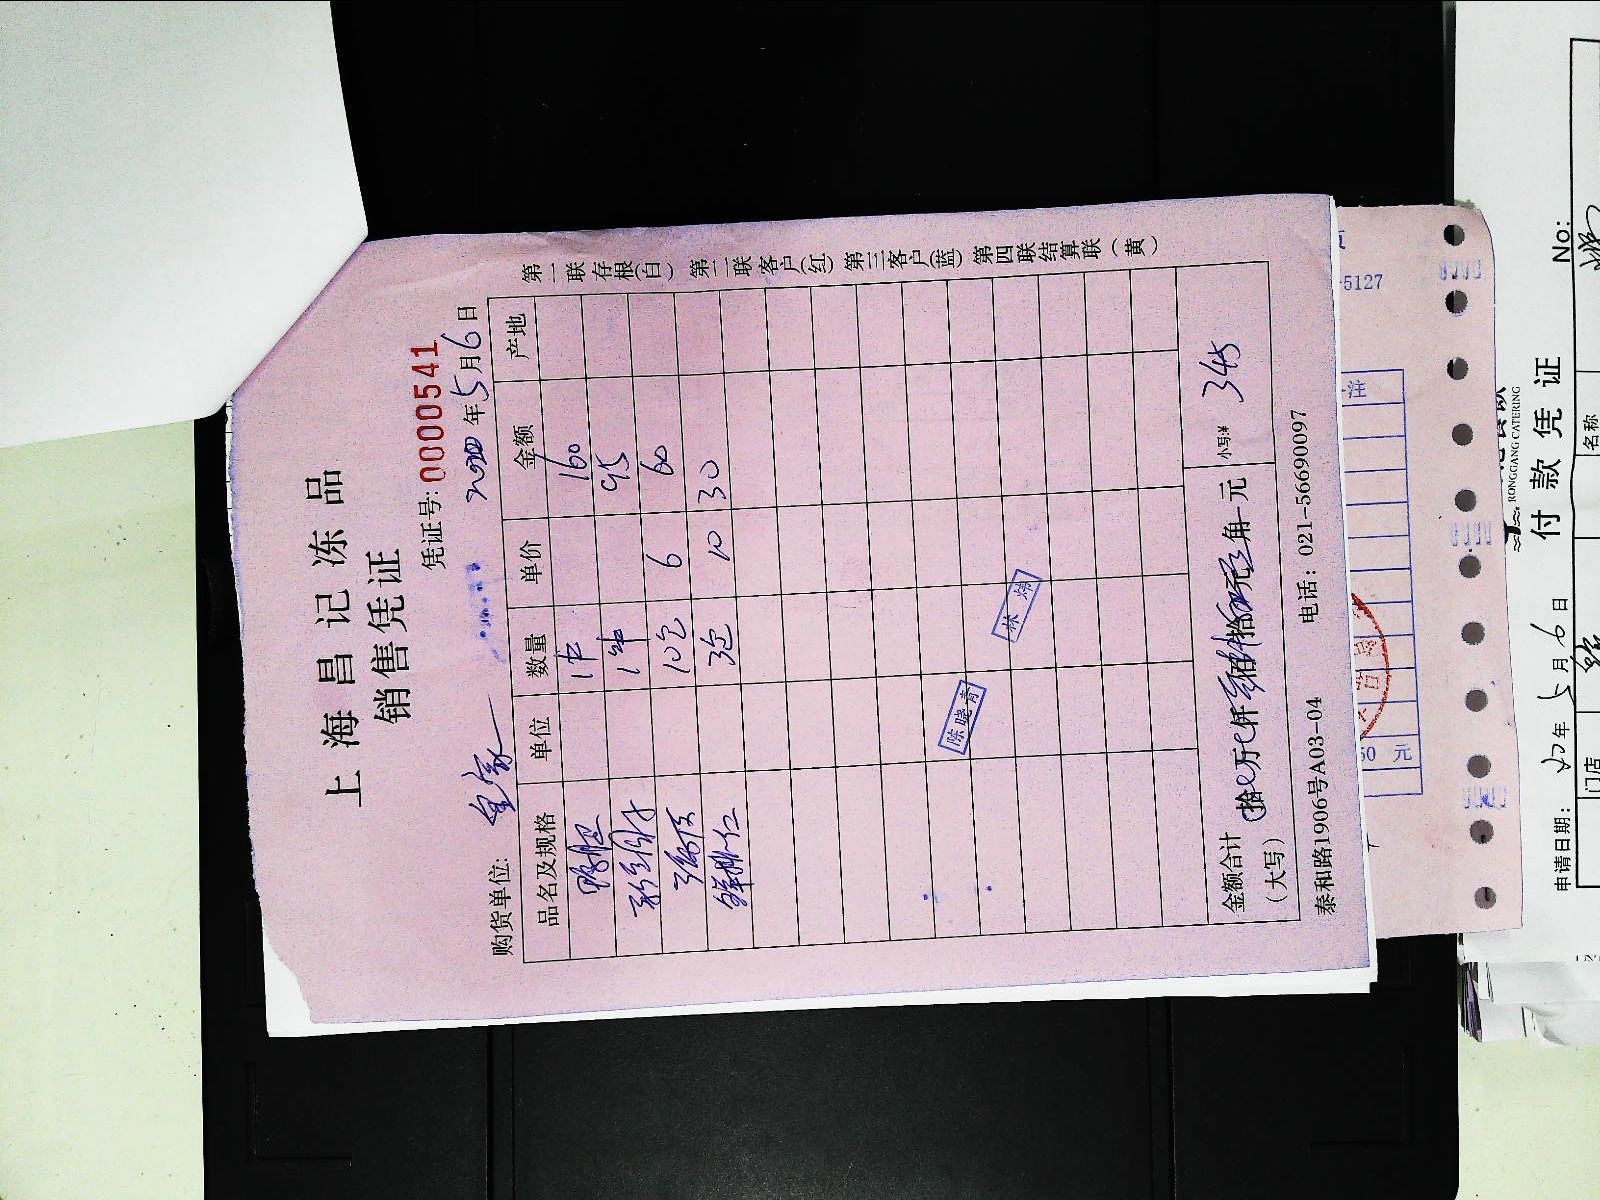 上海昌记冻品
销售凭证
凭证号: 0000541
购货单位:
2020年5月6日
品名及规格 单位 数量 单价 金额 产地
1件 160
1件 95
10包 6 60
鲜虾仁 3包 10 30
陈晓青
林炜
金额合计
(大写)
小写:¥ 345
泰和路1906号A03-04 电话：021-56690097
第一联存根(白) 第二联客户(红) 第三客户(蓝) 第四联结算联(黄)
-5127
注
50 元
RONGGANG CATERING
付款凭证
No:
申请日期: 年5月6日
门店
名称